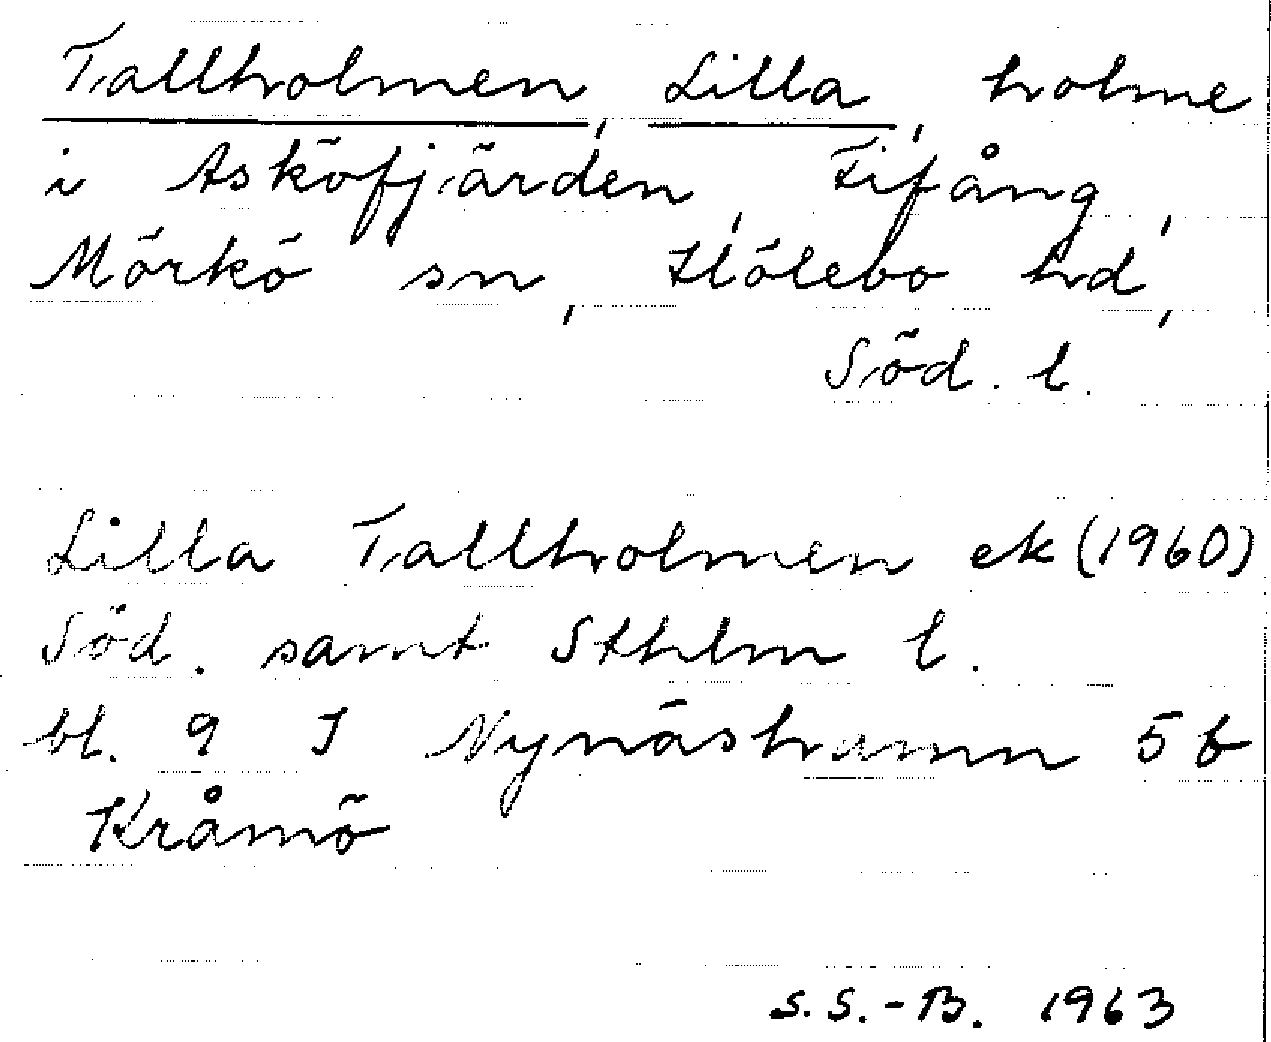 Tallholmen, Lilla, holme
i Asköfjärden, Fifång,
Mörkö sn, Hölebo hd,
Söd. l.
Lilla Tallholmen ek (1960)
Söd. samt Sthlm l.
bl. 9 I Nynäshamn 5 b
Kråmö
S.S.-B. 1963